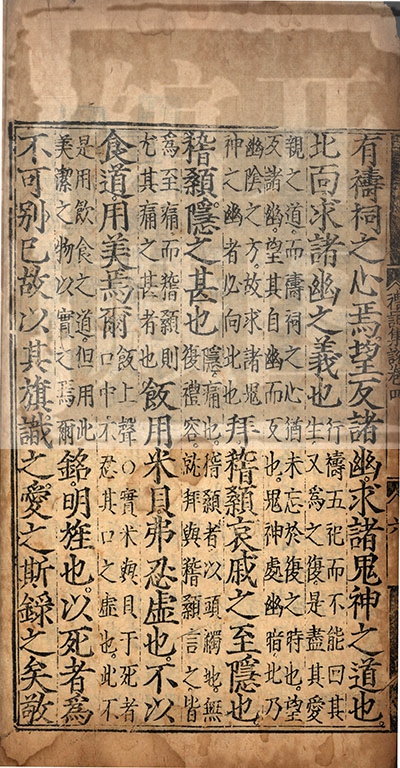 有禱祠之心焉望反諸幽求諸鬼神之道也
北面求諸幽之義也
行禱五祀而不能回其
生又為之復是盡其愛
親之道而禱祠之心猶未忘於復之時也望
反諸幽望其自幽而反也鬼神處幽暗此乃
幽陰之方故求諸鬼
神之幽者必向北也
拜稽顙哀戚之至隱也
稽顙隱之甚也
隱痛也稽顙者以頭觸地無
復禮容就拜與稽顙言之皆
為至痛而稽顙則
尤其痛之甚者也
飯用米貝弗忍虛也不以
食道用美焉爾
飯上聲○實米與貝于死者
口中不忍其口之虛也此不
是用飲食之道但用此
美潔之物以實之焉爾
銘明旌也以死者為
不可别已故以其旗識之愛之斯錄之矣敬